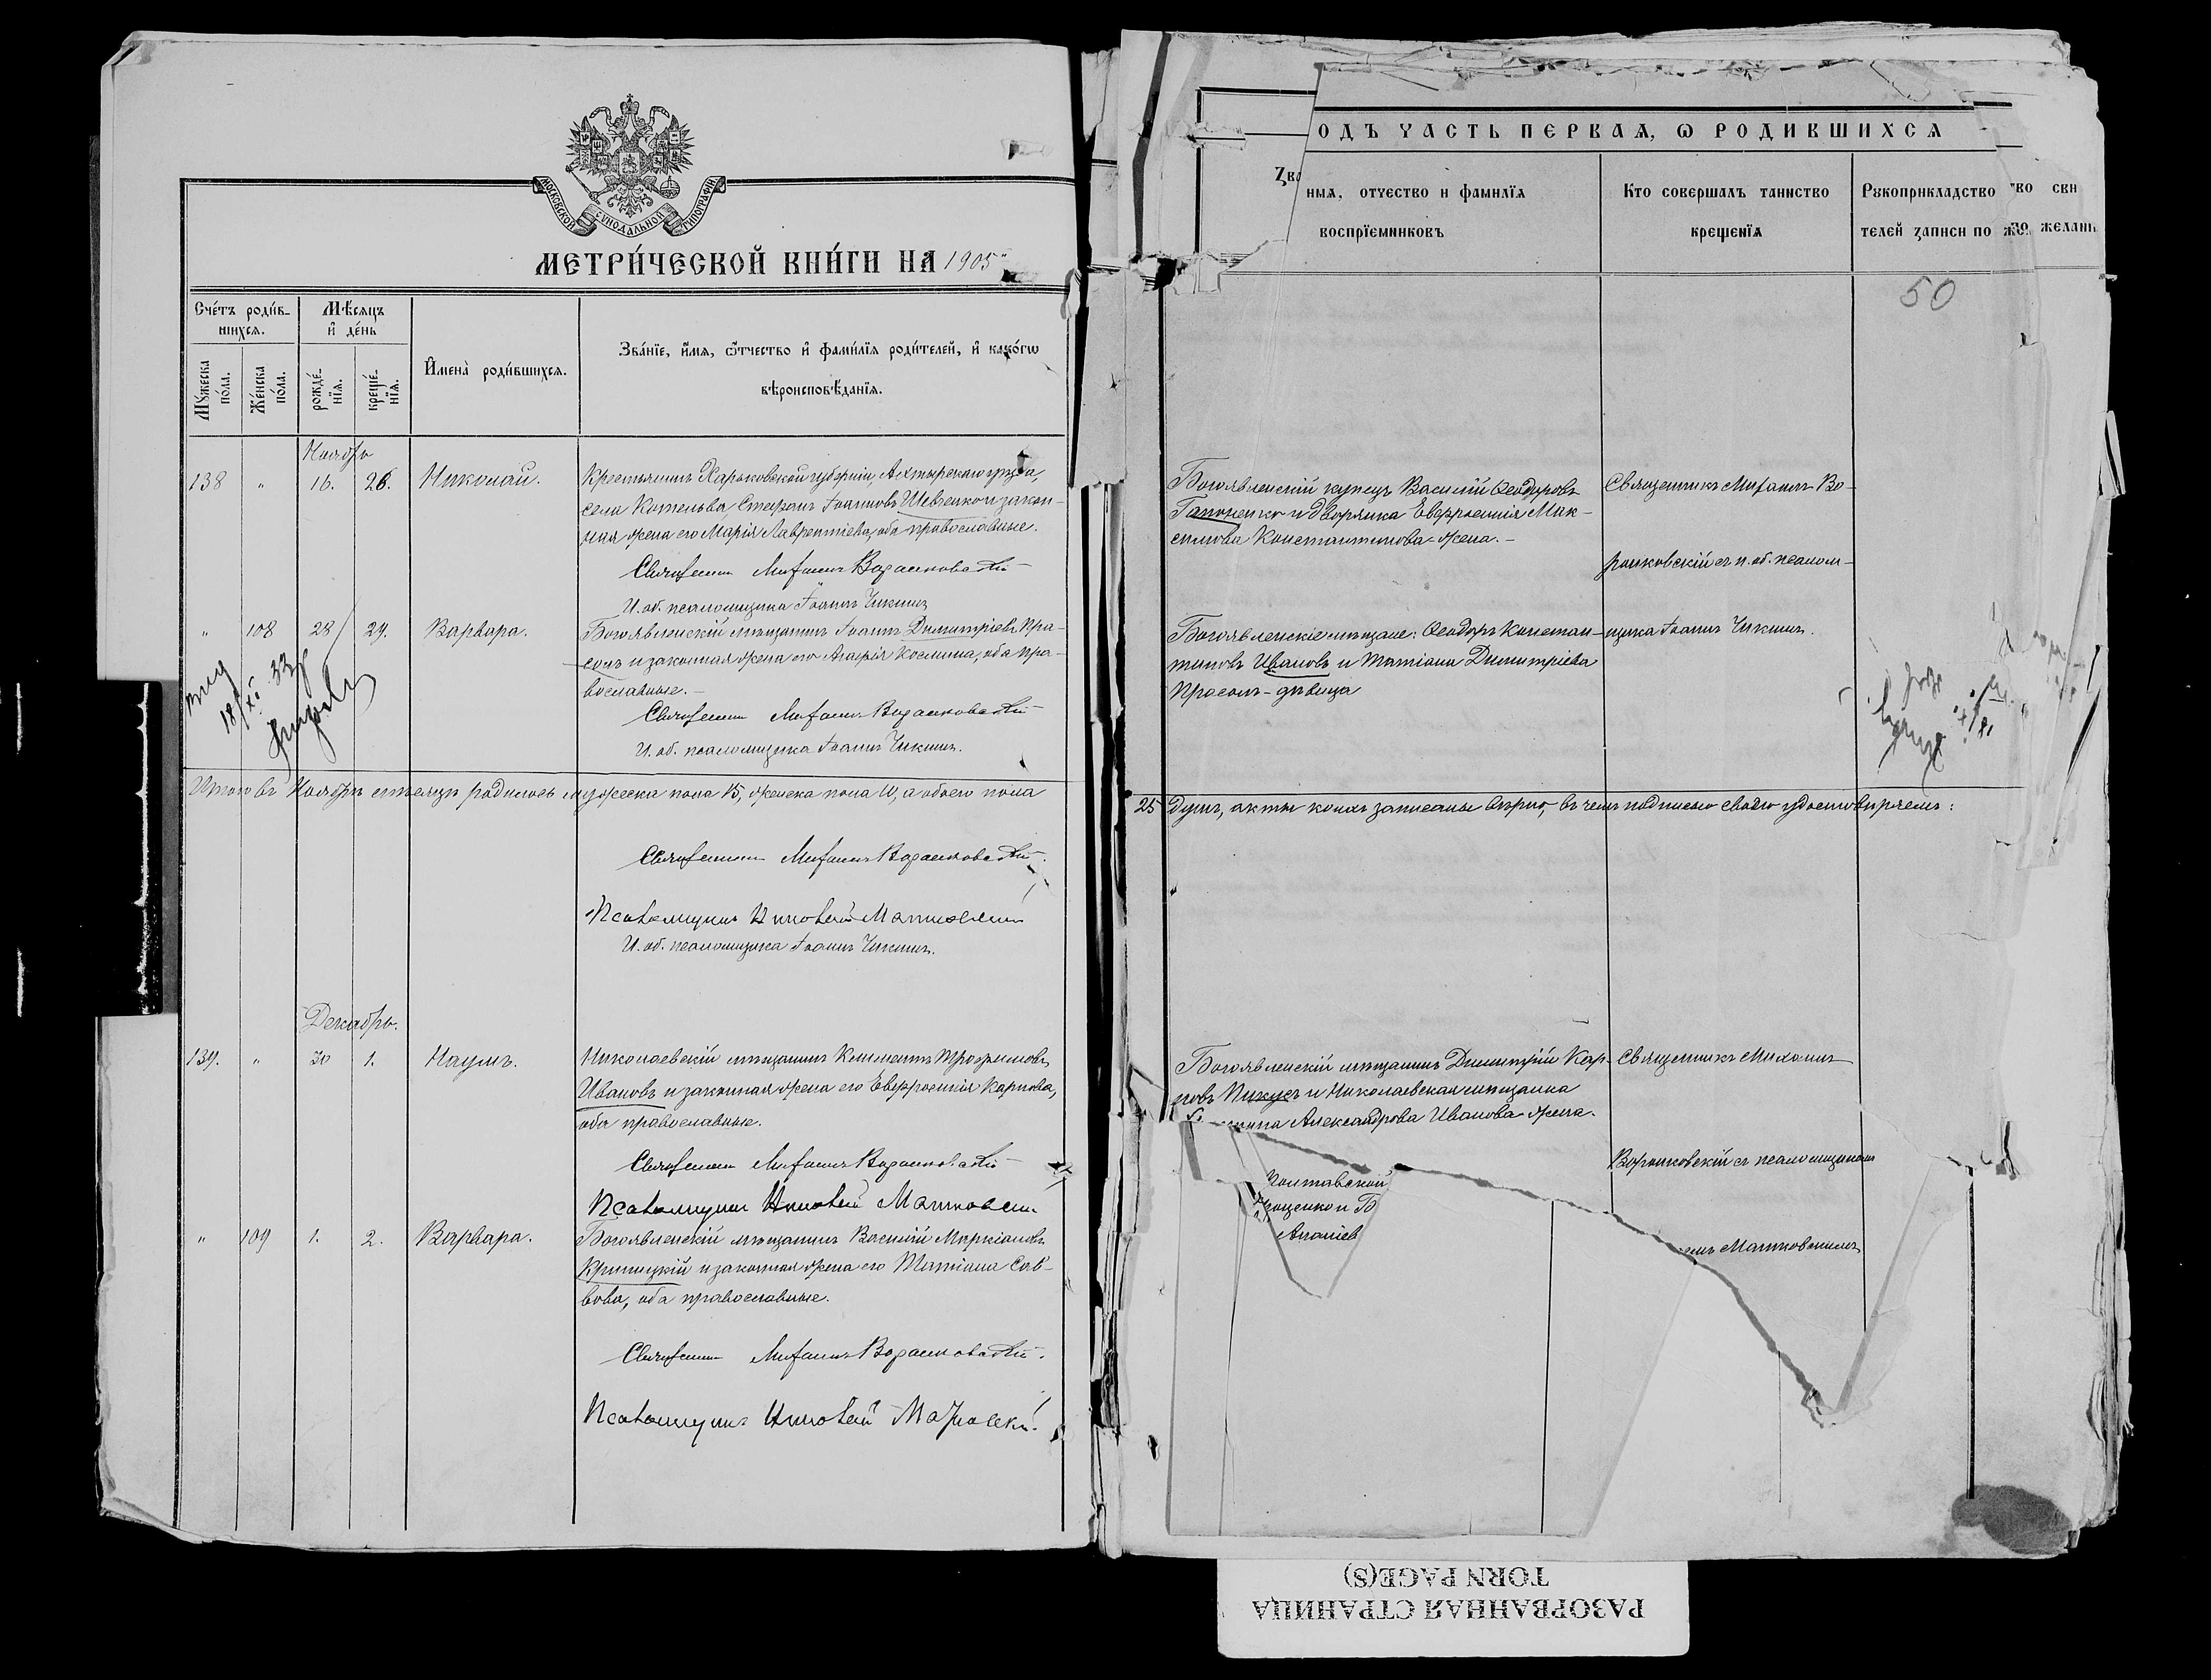 МОСКОВСКОЙ СѴНОДАЛЬНОЙ ТИПОГРАФІИ
МЕТРИ́ЧЕСКОЙ КНИ́ГИ НА 1905
Счéтъ роди́в-
шихсѧ.
Мѣ́сѧцъ
и҆ де́нь
Мꙋ́жеска
по́ла.
Же́нска
по́ла.
рожде́-
нїѧ.
креще́-
нїѧ.
И҆мена̀ роди́вшихсѧ.
Зва́нїе, и҆́мѧ, ѻ҆́тчество и҆ фамі́лїѧ роди́телей, и҆ како́гѡ
вѣроисповѣ́данїѧ.
Ноябрь
138 " 16. 26. Николай.
Крестьянинъ Харьковской губерніи, Ахтырскаго уѣзда,
села Котельва Стефанъ Іоанновъ Шевченко и закон-
ная жена его Марія Лаврентіева, оба православные.
Священникъ Михаилъ Воронковскій
И. об. псаломщика Іоаннъ Чикинъ
" 108 28 29. Варвара.
Богоявленскій мѣщанинъ Іоаннъ Димитріевъ Пра-
солъ и законная жена его Агафія Космина, оба пра-
вославные.-
Священникъ Михаилъ Воронковскій
И. об. псаломщика Іоаннъ Чикинъ.
18/XI 33
Итого въ Ноябрѣ мѣсяцѣ родилось мужеска пола 15, женска пола 10, а обоего пола
Священникъ Михаилъ Воронковскій.
Псаломщикъ Николай Матковскій
И. об. псаломщика Іоаннъ Чикинъ.
Декабрь.
139. " 30 1. Наумъ.
Николаевскій мѣщанинъ Климентъ Трофимовъ
Ивановъ и законная жена его Евфросинія Карпова,
оба православные.
Священникъ Михаилъ Воронковскій
Псаломщикъ Николай Матковскій
" 109 1. 2. Варвара.
Богоявленскій мѣщанинъ Василій Маркіановъ
Криницкій и законная жена его Татіана Сав-
вова, оба православные.
Священникъ Михаилъ Воронковскій.
Псаломщикъ Николай Матковскій
ОДЪ ЧАСТЬ ПЕРВАѦ, Ѡ РОДИВШИХСѦ
Зва
имѧ, отчество и фамилїѧ
воспрїемниковъ
Кто совершалъ таинство
крещенїѧ
Рꙋкоприкладство
телей записи по
во сви
желані
50
Богоявленскій купецъ Василій Ѳеодоровъ
Гапоненко и дворянка Евфросинія Мак-
симова Константинова-жена.-
Священникъ Михаилъ Во-
ронковскій съ и. об. псалом-
щика Іоаннъ Чикинъ.
Богоявленскіе мѣщане: Ѳеодоръ Констан-
тиновъ Ивановъ и Татіана Димитріева
Прасолъ-дѣвица
25 душъ, акты коихъ записаны вѣрно, въ чемъ подписью своею удостовѣряемъ:
Богоявленскій мѣщанинъ Димитрій Кар-
повъ Пикусъ и Николаевская мѣщанка
Александрова Иванова-жена.
Священникъ Михаилъ
Воронковскій съ псаломщикомъ
Матковскимъ
Полтавской
роценко и Б
Ананіев
РАЗОРВАННАЯ СТРАНИЦА
TORN PAGE(S)